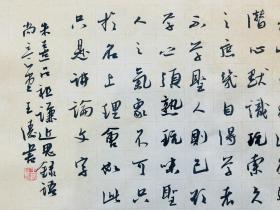 潛心默識玩索久
之庶幾自得學者
不學聖人則已欲
學之須熟玩味聖
人之氣象不可只
於名上理會如此
只是講論文字
朱熹呂祖謙近思錄語
尚 王濤書